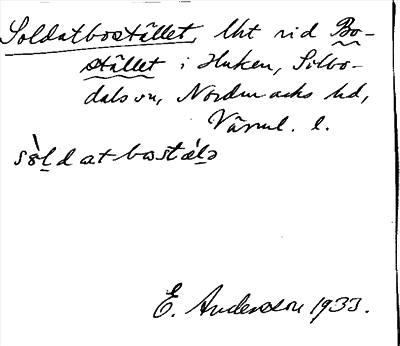 Soldatbostället, Uht vid Bo-
stället i Haken, Silbo-
dals sn, Nordmarks hd,
Värml. l.
sòldatbostǽlə
E. Andersson 1933.